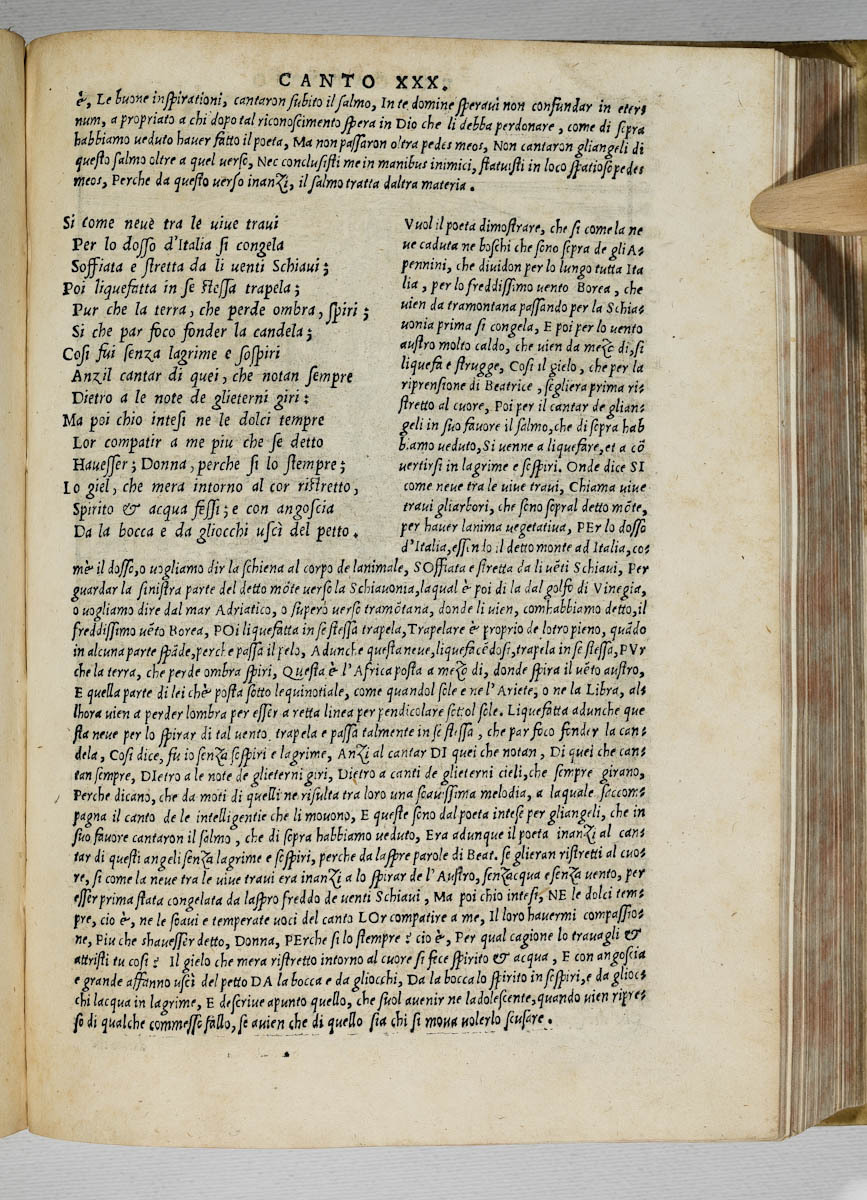 CANTO XXX.
è, Le buone inspirationi, cantaron subito il salmo, In te domine speraui non confundar in eter-
num, a propriato a chi dopo tal riconoscimento spera in Dio che li debba perdonare, come di sopra
habbiamo ueduto hauer fatto il poeta, Ma non passaron oltra pedes meos, Non cantaron gliangeli di
questo salmo oltre a quel uerso, Nec conclusisti me in manibus inimici, statuisti in loco spatioso pedes
meos, Perche da questo uerso inanzi, il salmo tratta daltra materia.
Si come neuè tra le uiue traui
Per lo dosso d'Italia si congela
Soffiata e stretta da li uenti Schiaui;
Poi liquefatta in se stessa trapela;
Pur che la terra, che perde ombra, spiri;
Si che par foco fonder la candela;
Cosi fui senza lagrime e sospiri
Anzil cantar di quei, che notan sempre
Dietro a le note de glieterni giri:
Ma poi chio intesi ne le dolci tempre
Lor compatir a me piu che se detto
Hauesser; Donna, perche si lo stempre;
Lo giel, che mera intorno al cor ristretto,
Spirito & acqua fessi; e con angoscia
Da la bocca e da gliocchi uscì del petto.
Vuol il poeta dimostrare, che si come la ne
ue caduta ne boschi che sono sopra de gli A-
pennini, che diuidon per lo lungo tutta Ita
lia, per lo freddissimo uento Borea, che
uien da tramontana passando per la Schia-
uonia prima si congela, E poi per lo uento
austro molto caldo, che uien da mezo di, si
liquefa e strugge, Cosi il gielo, che per la
riprensione di Beatrice, segliera prima ri-
stretto al cuore, Poi per il cantar de glian-
geli in suo fauore il salmo, che di sopra hab
biamo ueduto, Si uenne a liquefare, et a cō
uertirsi in lagrime e sospiri. Onde dice SI
come neue tra le uiue traui, Chiama uiue
traui gliarbori, che sono sopral detto mōte,
per hauer lanima uegetatiua, PEr lo dosso
d'Italia, essendo il detto monte ad Italia, co-
mè il dosso, o uogliamo dir la schiena al corpo de lanimale, SOffiata e stretta da li uēti Schiaui, Per
guardar la sinistra parte del detto mōte uerso la Schiauonia, laqual è poi di la dal golfo di Vinegia,
o uogliamo dire dal mar Adriatico, o superò uerso tramōtana, donde li uien, comhabbiamo detto, il
freddissimo uēto Borea, POi liquefatta in se stessa trapela, Trapelare è proprio de lotro pieno, quādo
in alcuna parte spāde, perche passa il pelo, Adunche questa neue, liquefacēdosi, trapela in se stessa, PVr
che la terra, che perde ombra spiri, Questa è l'Africa posta a mezo di, donde spira il uēto austro,
E quella parte di lei chè posta sotto lequinotiale, come quandol sole e ne l'Ariete, o ne la Libra, al-
lhora uien a perder lombra per esser a retta linea per pendicolare sottol sole. Liquefatta adunche que
sta neue per lo spirar di tal uento, trapela e passa talmente in se stessa, che par foco fonder la can-
dela, Cosi dice, fu io senza sospiri e lagrime, Anzi al cantar DI quei che notan, Di quei che can-
tan sempre, DIetro a le note de glieterni giri, Dietro a canti de glieterni cieli, che sempre girano,
Perche dicano, che da moti di quelli ne risulta tra loro una soauissima melodia, a laquale saccom-
pagna il canto de le intelligentie che li mouono, E queste sono dal poeta intese per gliangeli, che in
suo fauore cantaron il salmo, che di sopra habbiamo ueduto, Era adunque il poeta inanzi al can-
tar di questi angeli senza lagrime e sospiri, perche da laspre parole di Beat. se glieran ristretti al cuo-
re, si come la neue tra le uiue traui era inanzi a lo spirar de l'Austro, senzacqua e senza uento, per
esser prima stata congelata da laspro freddo de uenti Schiaui, Ma poi chio intesi, NE le dolci tem-
pre, cio è, ne le soaui e temperate uoci del canto LOr compatire a me, Il loro hauermi compassio-
ne, Piu che shauesser detto, Donna, PErche si lo stempre? cio è, Per qual cagione lo trauagli &
attristi tu cosi? Il gielo che mera ristretto intorno al cuore si fece spirito & acqua, E con angoscia
e grande affanno uscì del petto DA la bocca e da gliocchi, Da la bocca lo spirito in sospiri, e da glioc-
chi lacqua in lagrime, E descriue apunto quello, che suol auenir ne ladolescente, quando uien ripre-
so di qualche commesso fallo, se auien che di quello sia chi si moua uolerlo scusare.